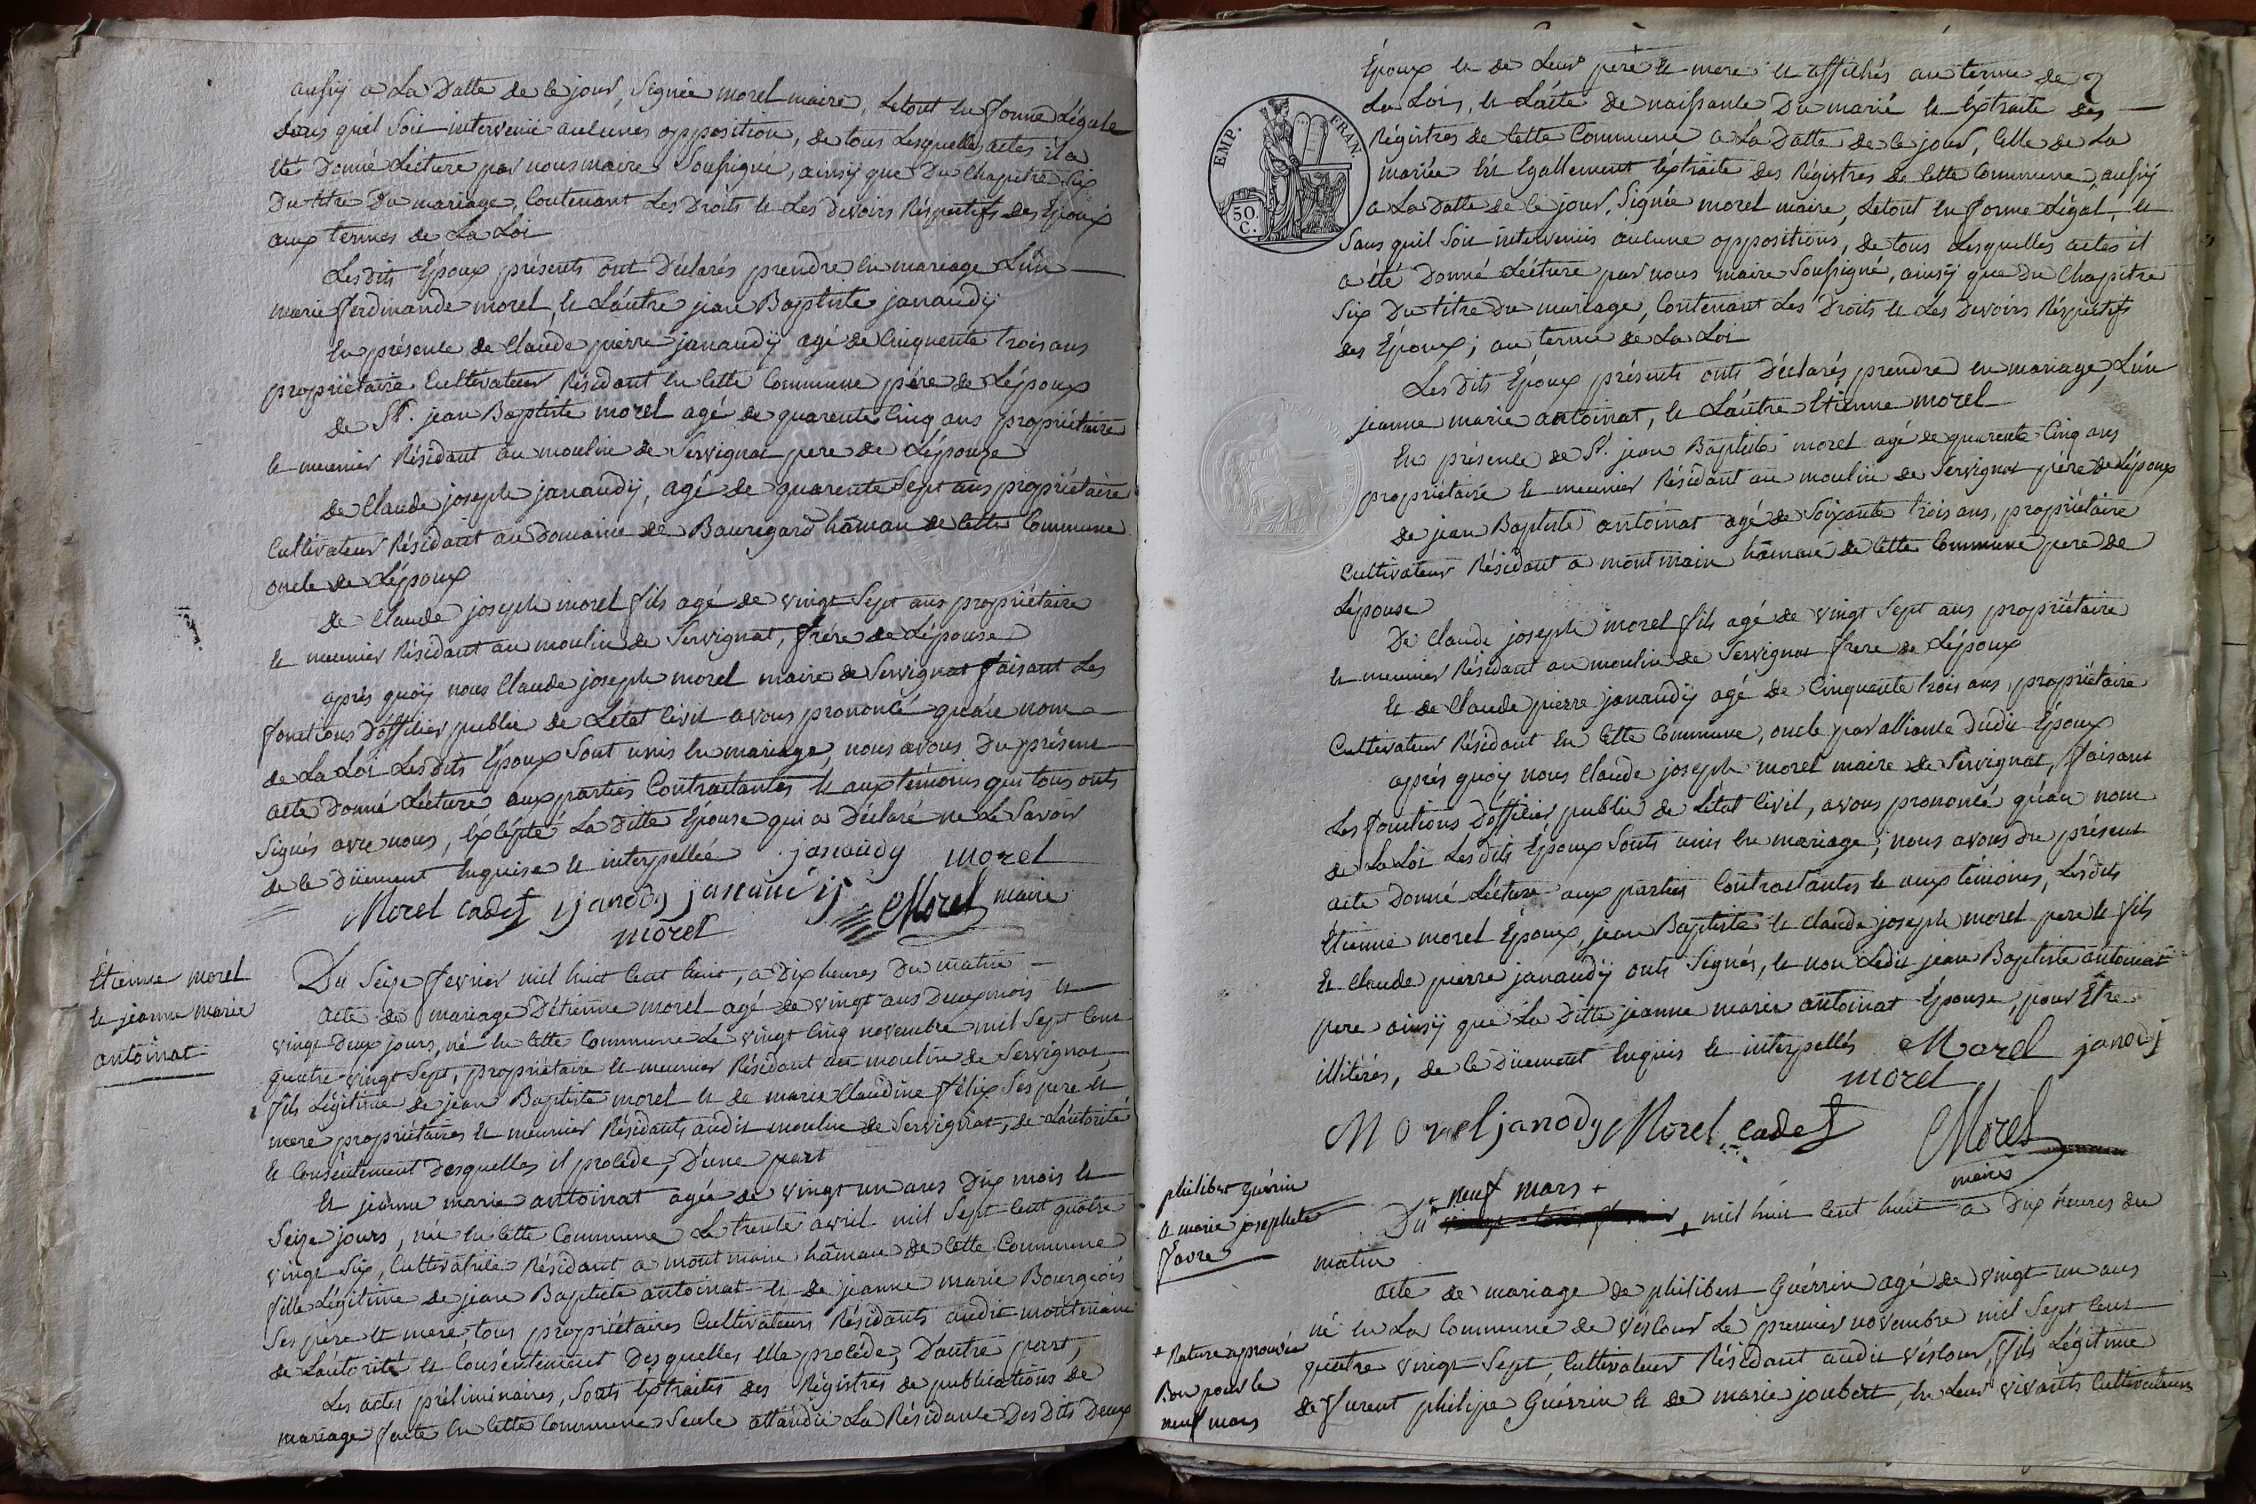 aussy a La Datte de ce jour, Signée morel maire, Letout en forme Légale
sans quil Soit intervenü aucunes opposition, de tous Lesquelles actes il a
été Donné Lécture par nous maire Soussigné, ainsÿ que Du Chapitre Six
Du titre Du mariage, Contenant Les Droits et Les Devoirs Réspectifs des Epoux
aux termes de La Loi
Les dits Epoux présents ont Déclarés prendre en mariage L'un
marie ferdinande morel, et L'autre jean Baptiste janaudÿ
En présence de Claude pierre janaudÿ agé de Cinquente trois ans
propriétaire Cultivateur Résidant en Cette Commune père de L'époux
de Sr. jean Baptiste morel agé de quarente Cinq ans propriétaire
et meunier Résidant au moulin de Servignat pere de L'épouse
de Claude joseph janaudÿ, agé de quarente Sept ans propriétaire
Cultivateur Résidant au Domaine de Bauregard hâmau de Cette Commune
oncle de L'époux
De Claude joseph morel fils agé de vingt Sept ans propriétaire
et meunier Résidant au moulin de Servignat, frère de L'épouse
après quoÿ nous Claude joseph morel maire de Servignat faisant Les
fonctions D'officier public de L'état Civil avons prononcé qu'au nom
de La Loi Les dits Epoux Sont unis en mariage, nous avons Du présent
acte Donné Lécture aux parties Contractantes et aux témoins qui tous onts
Signés avec nous, éxcépté La Ditte Epouse qui a Déclaré ne Le Savoir
de ce Düement Enquise et interpellée janaudy morel
Morel cadet janody janaudÿ Morel maire
morel
Etienne morel
et jeanne marie
antoinat
Du Seize fevrier mil huit Cent huit, a Dix heures Du matin
acte de mariage D'étienne morel agé de vingt ans Deux mois et
vingt Deux jours, né en Cette Commune Le vingt Cinq novembre mil Sept Cent
quatre vingt Sept, propriétaire et meunier Résidant au moulin de Servignat,
fils Légitime de jean Baptiste morel et de marie Claudine félix Ses pere et
mere propriétaires et meunier Résidants audit moulin de Servignat, de L'autorité
et Conséntement Desquelles il procéde, D'une part
Et jeanne marie antoinat agée de vingt un ans Dix mois et
Seize jours, née en Cette Commune Le trente avril mil Sept Cent quatre
vingt Six, Cultivatrice Résidant a montmain hâmau de Cette Commune
fille Légitime de jean Baptiste antoinat et de jeanne marie Bourgeois
Ses pere et mere, tous propriétaires Cultivateurs Résidants audit montmain
de L'autorité et Conséntement Desquelles Elle procéde, D'autre part,
Les actes préliminaires, Sonts Extraits des Régistres de publications de
mariage faite en Cette Commune Seule attendü La Résidence Des Dits Deux
Epoux et de Leur pere et mere et affichés au terme de
La Loi, et L'acte de naissance Du marié et Extraite des
Régistres de Cette Commune a La Datte de ce jour, Celle de La
mariée Est Egallement Extraite des Régistres de Cette Commune, aussÿ
a La Datte de ce jour, Signée morel maire, Letout en forme Légal, et
Sans quil Soit intervenus aucune oppositions, de tous Lesquelles actes il
a été Donné Lécture par nous maire Soussigné, ainsÿ que Du Chapitre
Six Du titre Du mariage, Contenant Les Droits et Les Devoirs Réspectifs
des Epoux, au terme de La Loi
EMP. FRAN.
50. C.
Les Dits Epoux présents onts Déclarés prendre en mariage, L'un
jeanne marie antoinat, et L'autre Etienne morel
En présence de Sr. jean Baptiste morel agé de quarente Cinq ans
propriétaire et meunier Résidant au moulin de Servignat père de L'époux
de jean Baptiste antoinat agé de Soixante trois ans, propriétaire
Cultivateur Résidant a montmain hâmau de Cette Commune pere de
L'épouse
De Claude joseph morel fils agé de vingt Sept ans propriétaire
et meunier Résidant au moulin de Servignat frere de L'époux
et de Claude pierre janaudÿ agé de Cinquente trois ans, propriétaire
Cultivateur Résidant en Cette Commune, oncle par alliance dudit Epoux
après quoÿ nous Claude joseph morel maire de Servignat, faisant
Les fonctions D'officier public de L'état Civil, avons prononcé qu'au nom
de La Loi Les dits Epoux Sonts unis en mariage, nous avons du présent
acte Donné Lécture aux parties Contractantes et aux témoins, Lésdits
Etienne morel Epoux, jean Baptiste et Claude joseph morel pere et fils
Et Claude pierre janaudÿ onts Signés, et non Ledit jean Baptiste antoinat
pere ainsÿ que La Ditte jeanne marie antoinat Epouse, pour Etre
illitérés, de ce Düement Enquis et interpellés Morel janody
morel
Morel janody Morel cadet Morel
maire
philibert guérin
et marie josephete
favre
neuf mars +
Du mil huit Cent huit a Dix heures du
matin
acte de mariage de philibert Guérrin agé de vingt un ans
né en La Commune de véscour Le premier novembre mil Sept Cent
quatre vingt Sept, Cultivateur Résidant audit véscour, fils Légitime
de furent philipe Guérrin et de marie joubert, en Leur vivants Cultivateurs
+ Rature approuvée
Bon pour le
neuf mars